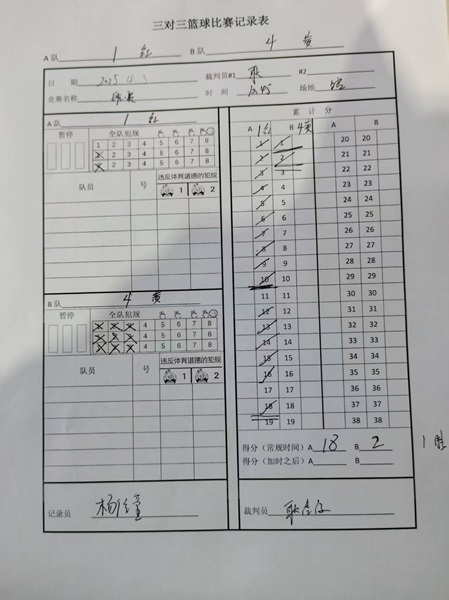 三对三篮球比赛记录表
A 队 1 红 B 队 4 黄
日 期 2025.4.3 裁判员#1 耿 #2
竞赛名称 时 间 场地
A 队 1 红
暂停 全队犯规
1 2 3 4 5 6 7 8
2 3 4 5 6 7 8
2 3 4 5 6 7 8
队员 号 违反体育道德的犯规
1 2
B 队 4 黄
暂停 全队犯规
4 5 6 7 8
4 5 6 7 8
4 5 6 7 8
队员 号 违反体育道德的犯规
1 2
记录员
累 计 分
A 1红 B 4黄 A B
1 1 20 20
2 2 21 21
3 3 22 22
4 4 23 23
5 5 24 24
6 6 25 25
7 7 26 26
8 8 27 27
9 9 28 28
10 10 29 29
11 11 30 30
12 12 31 31
13 13 32 32
14 14 33 33
15 15 34 34
16 16 35 35
17 17 36 36
18 18 37 37
19 19 38 38
得分（常规时间）A 18 B 2 1 胜
得分（加时之后）A B
裁判员